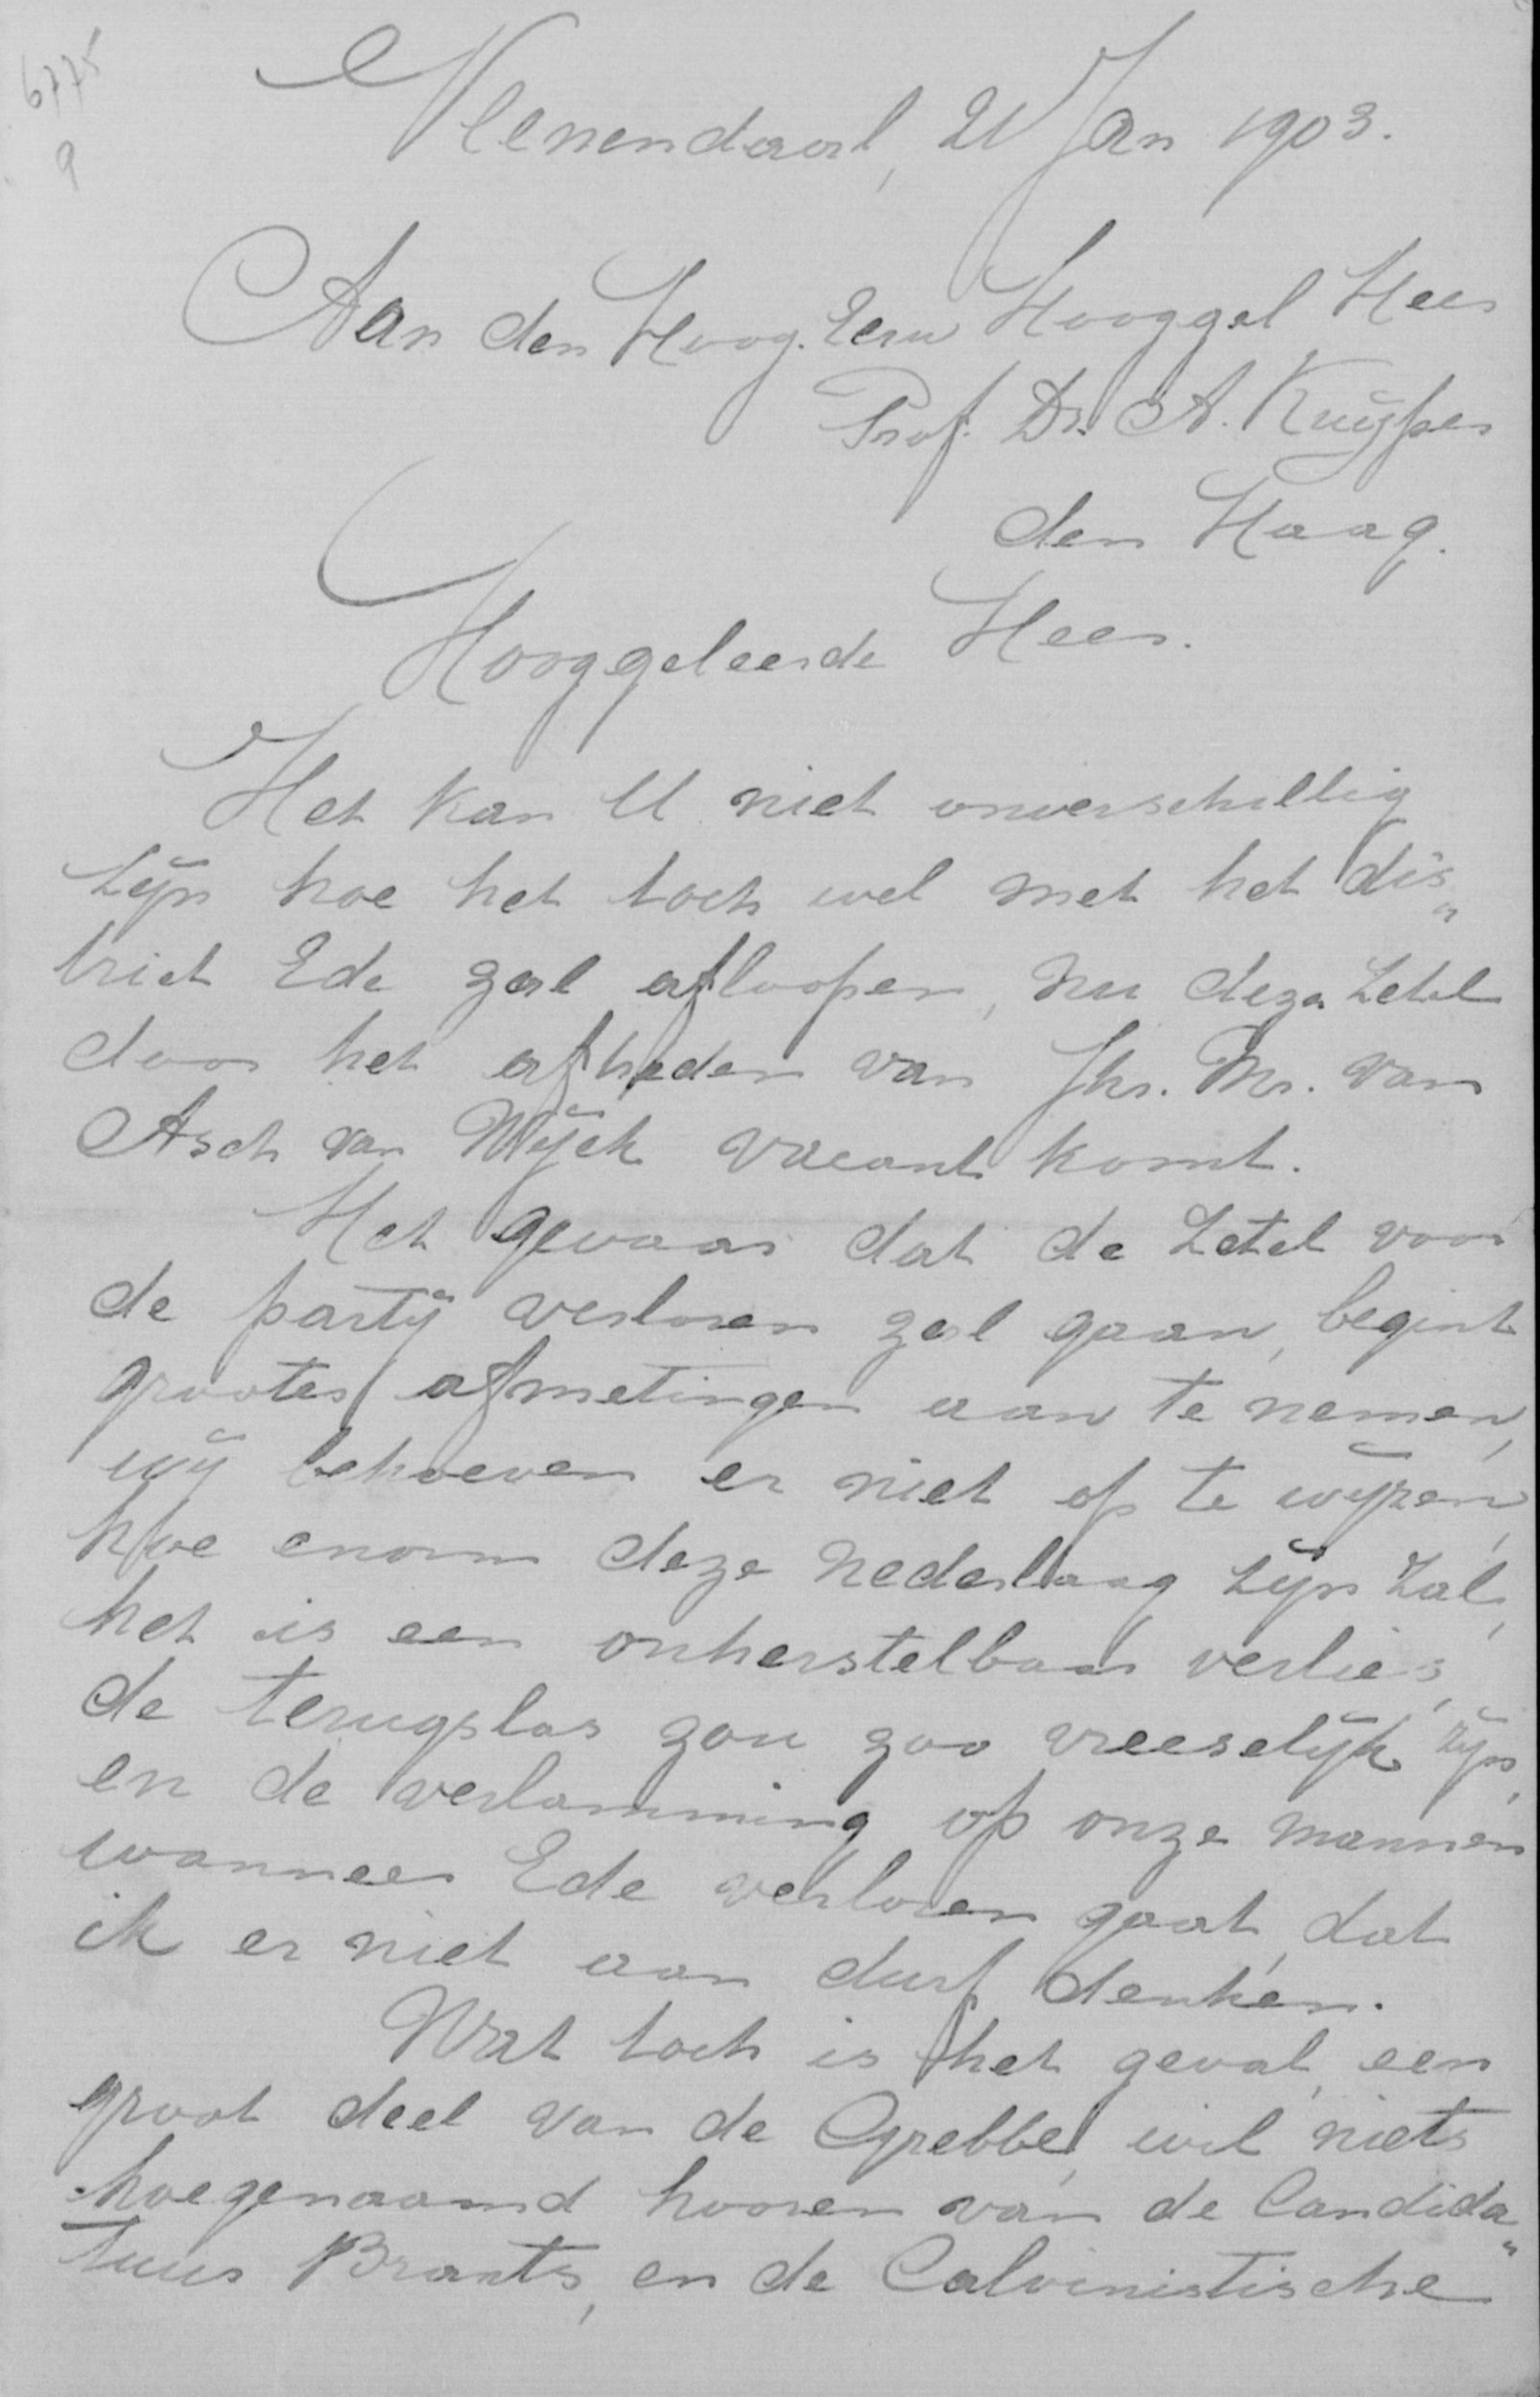 6775
9
Veenendaal, 21 Jan 1903.
Aan den Hoog. Eerw Hooggel Heer
Prof. Dr. A. Kuÿper
den Haag.
Hooggeleerde Heer.
Het kan U niet onverschillig
zijn hoe het toch wel met het dis„
trict Ede zal afloopen, nu deze zetel
door het aftreden van Jhr. Mr. van
Asch van Wijck vacant komt.
Het gevaar dat de zetel voor
de partij verloren zal gaan, begint
grooter afmetingen aan te nemen,
wij behoeven er niet op te wijzen,
hoe enorm deze nederlaag zijn zal,
het is een onherstelbaar verlies,
de terugslas zou zoo vreeselijk zijn,
en de verlamming op onze mannen
wanneer Ede verloren gaat, dat
ik er niet aan durf denken.
Wat toch is het geval, een
groot deel van de Grebbe, wil niets
hoegenaamd hooren van de Candida„
tuur Brants, en de Calvinistische